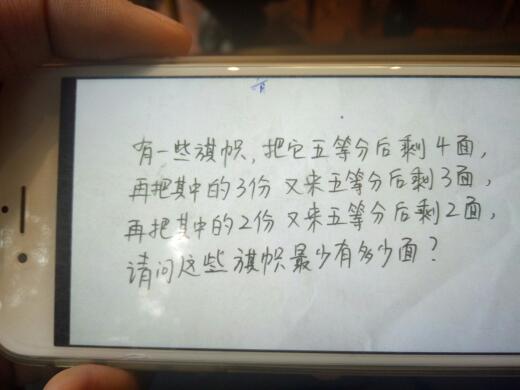 有一些旗帜，把它五等分后剩4面，
再把其中的3份又来五等分后剩3面，
再把其中的2份又来五等分后剩2面，
请问这些旗帜最少有多少面？